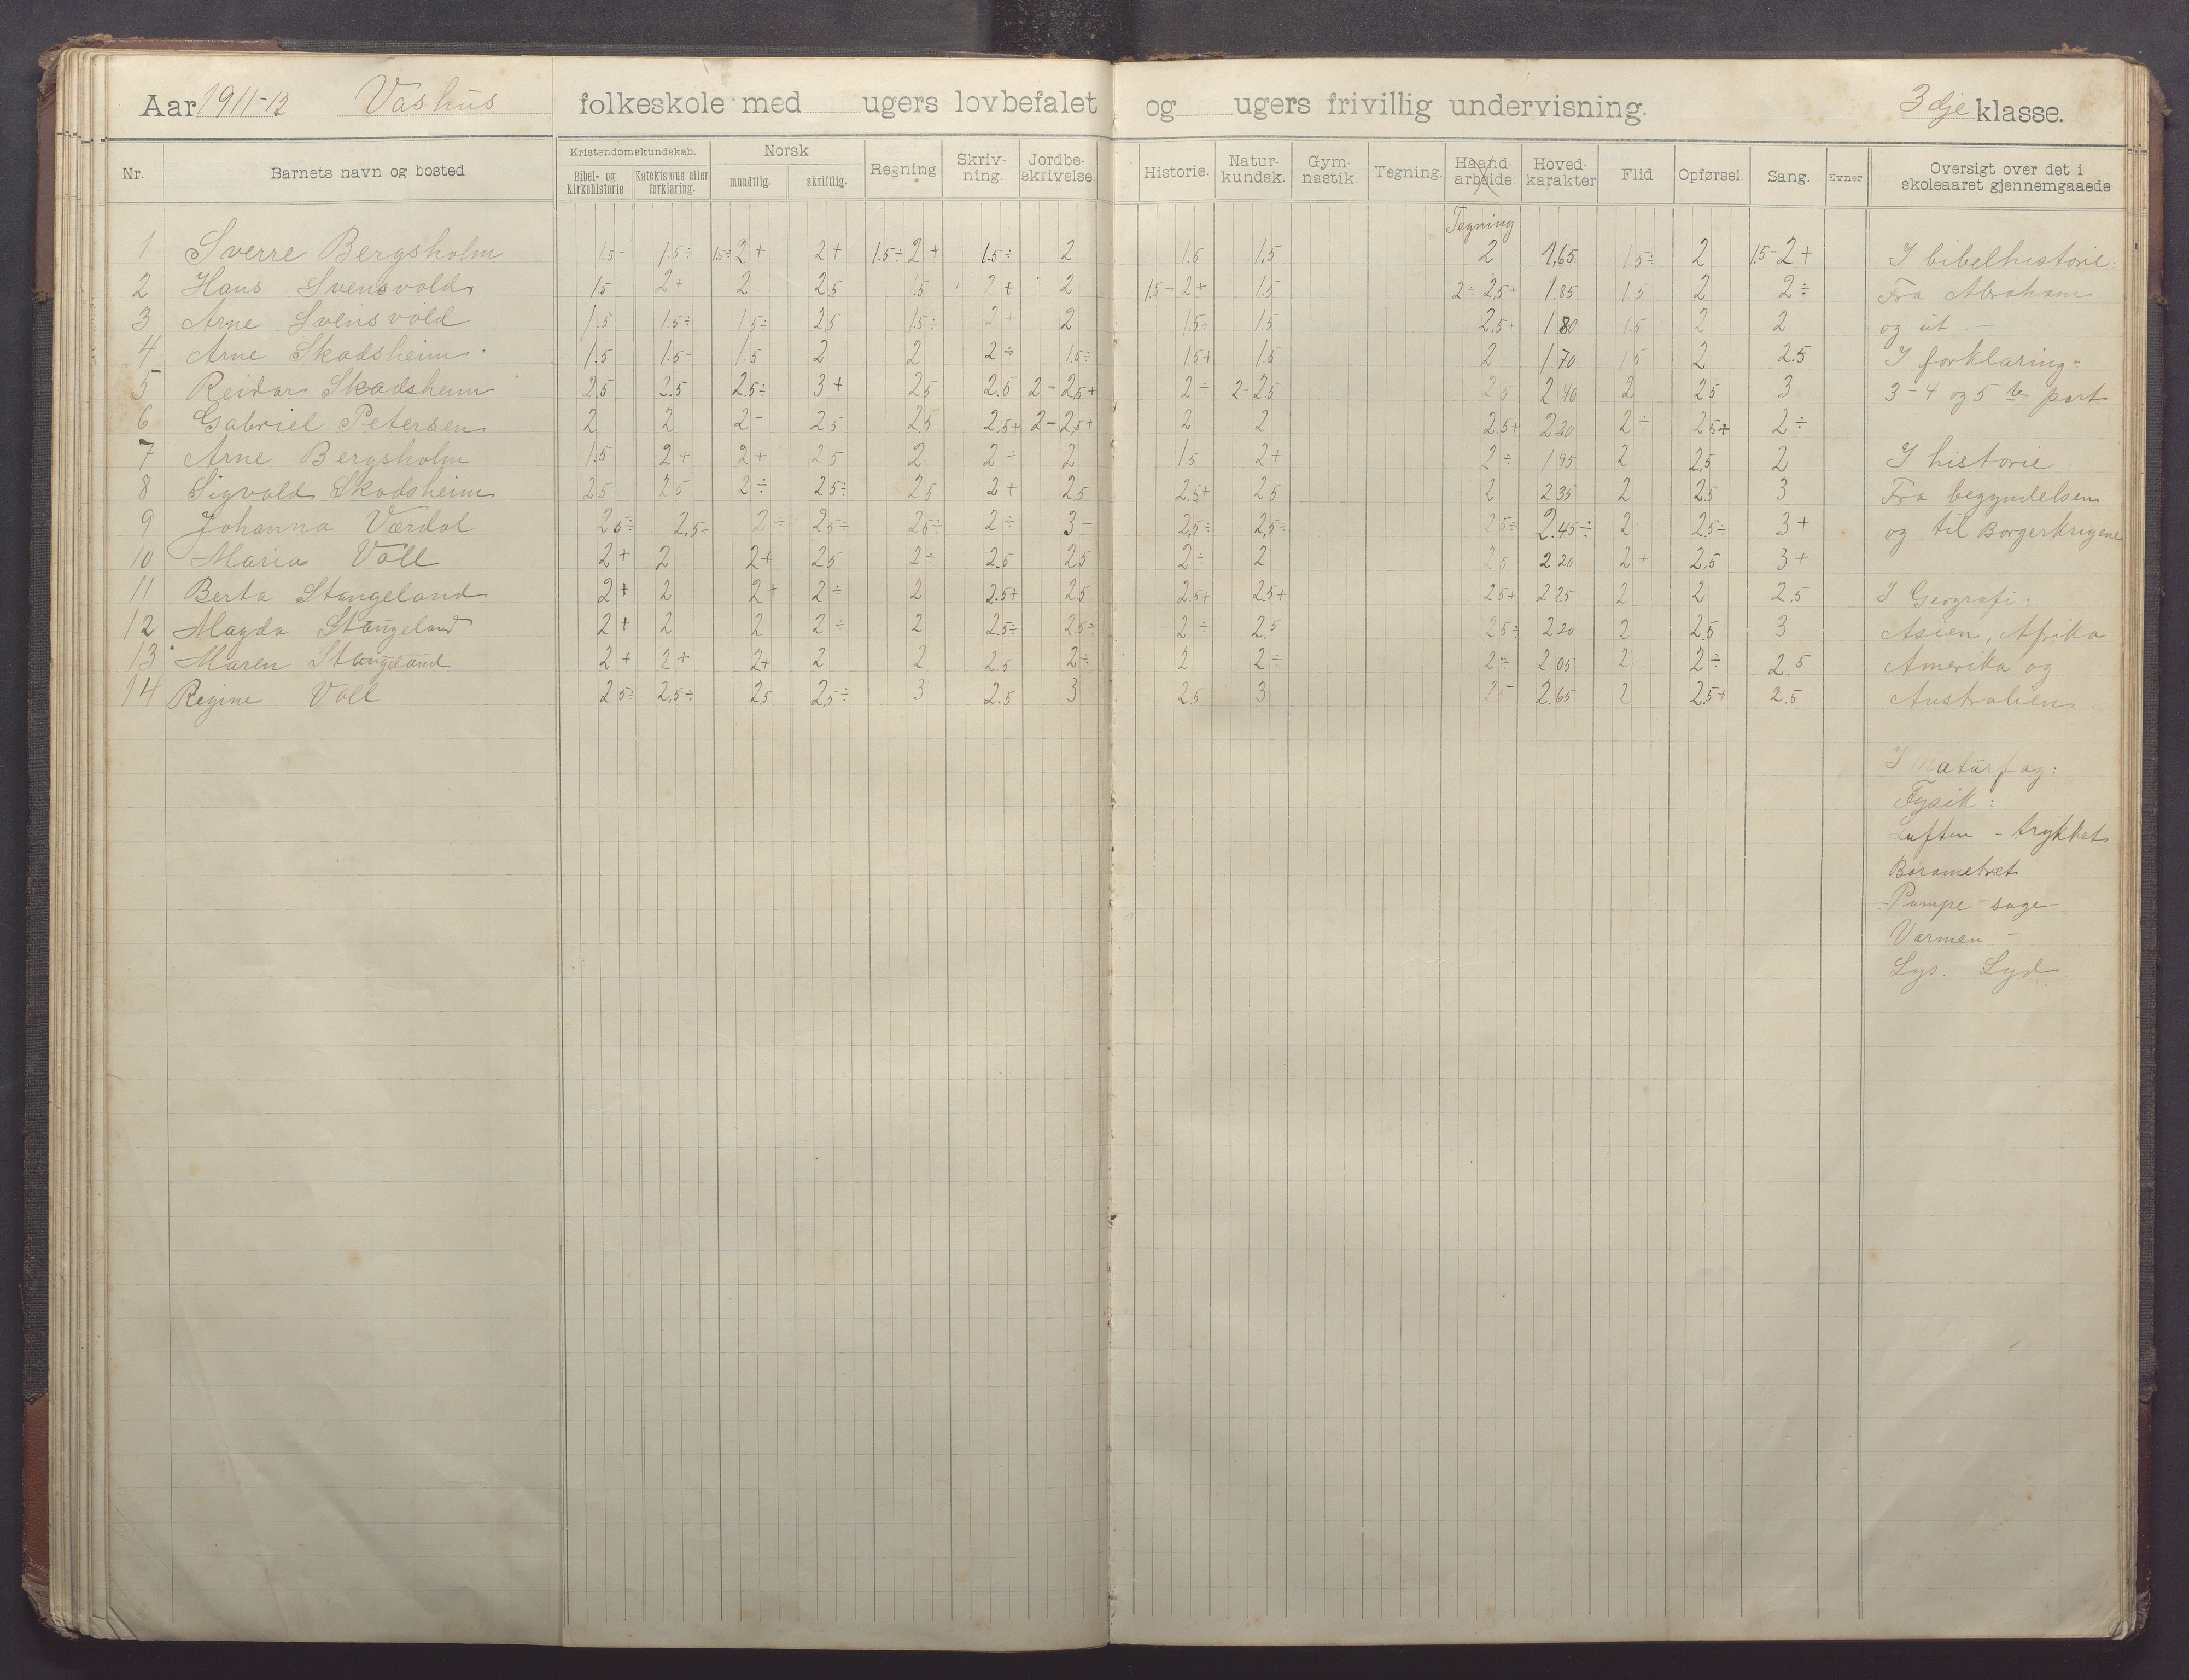 Aar 1911-12 Vashus folkeskole med ugers lovbefalet og ugers frivillig undervisning. 3dje klasse.
Nr. Barnets navn og bosted Kristendomskundskab. Bibel- og kirkehistorie Katekismus eller forklaring. Norsk mundtlig. skriftlig. Regning Skriv-ning. Jordbe-skrivelse. Historie. Natur-kundsk. Gym-nastik. Tegning. Haand-arbeide. Hoved-karakter Flid Opførsel. Sang. Evner Oversigt over det i skoleaaret gjennemgaaede
Tegning
1 Sverre Bergsholm 1.5- 1.5÷ 1.5÷2+ 2+ 1.5÷2+ 1.5÷ 2 1.5 1.5 2 1,65 1.5÷ 2 1.5-2+ I bibelhistorie:
2 Hans Svensvold 1.5 2+ 2 2.5 1.5 2+ 2 1.5-2+ 1.5 2÷2.5+ 1.85 1.5 2 2÷ Fra Abraham
3 Arne Svensvold 1.5 1.5÷ 1.5÷ 2.5 1.5÷ 2+ 2 1.5÷ 1.5 2.5+ 1.80 1.5 2 2 og ut -
4 Arne Skadsheim 1.5 1.5÷ 1.5 2 2 2÷ 1.5÷ 1.5+ 1.5 2 1 70 1 5 2 2.5 I forklaring-
5 Reidar Skadsheim 2.5 2.5 2.5÷ 3+ 2.5 2.5 2-2.5+ 2÷ 2-2.5 2 5 2 40 2 2 5 3 3-4 og 5 te part
6 Gabriel Petersen 2 2 2- 2.5 2.5 2.5+ 2-2.5+ 2 2 2.5+ 2 20 2÷ 2 5+ 2÷
7 Arne Bergsholm 1.5 2+ 2+ 2 5 2 2÷ 2 1 5 2+ 2÷ 1 95 2 2.5 2 I historie
8 Sigvald Skadsheim 2 5 2 5 2÷ 2 5÷ 2 5 2+ 2.5 2.5+ 2 5 2 2 35 2 2.5 3 Fra begyndelsen
9 Johanna Værdal 2 5÷ 2.5÷ 2÷ 2 5÷ 2 5÷ 2÷ 3- 2,5÷ 2,5÷ 2 5÷ 2.45÷ 2 2.5÷ 3+ og til Borgerkrigene
10 Maria Voll 2+ 2 2+ 2 5 2÷ 2.5 2.5 2÷ 2 2 5 2 20 2+ 2,5 3+
11 Berta Stangeland 2+ 2 2+ 2÷ 2 2.5+ 2 5 2.5+ 2 5+ 2 5+ 2 25 2 2 2,5 I Geografi:
12 Magda Stangeland 2+ 2 2 2÷ 2 2.5÷ 2.5÷ 2÷ 2,5 2 5÷ 2 20 2 2.5 3 Asien, Afrika
13 Maren Stangeland 2+ 2+ 2+ 2 2 2.5 2÷ 2 2÷ 2÷ 2 05 2 2÷ 2 5 Amerika og
14 Regine Voll 2 5÷ 2,5÷ 2,5 2,5÷ 3 2.5 3 2.5 3 2 5 2.65 2 2.5+ 2.5 Australien.
I Naturfag:
Fysik:
Luften - trykket
Barometret
-Pumpe-suge-
Varmen -
Lys. Lyd.